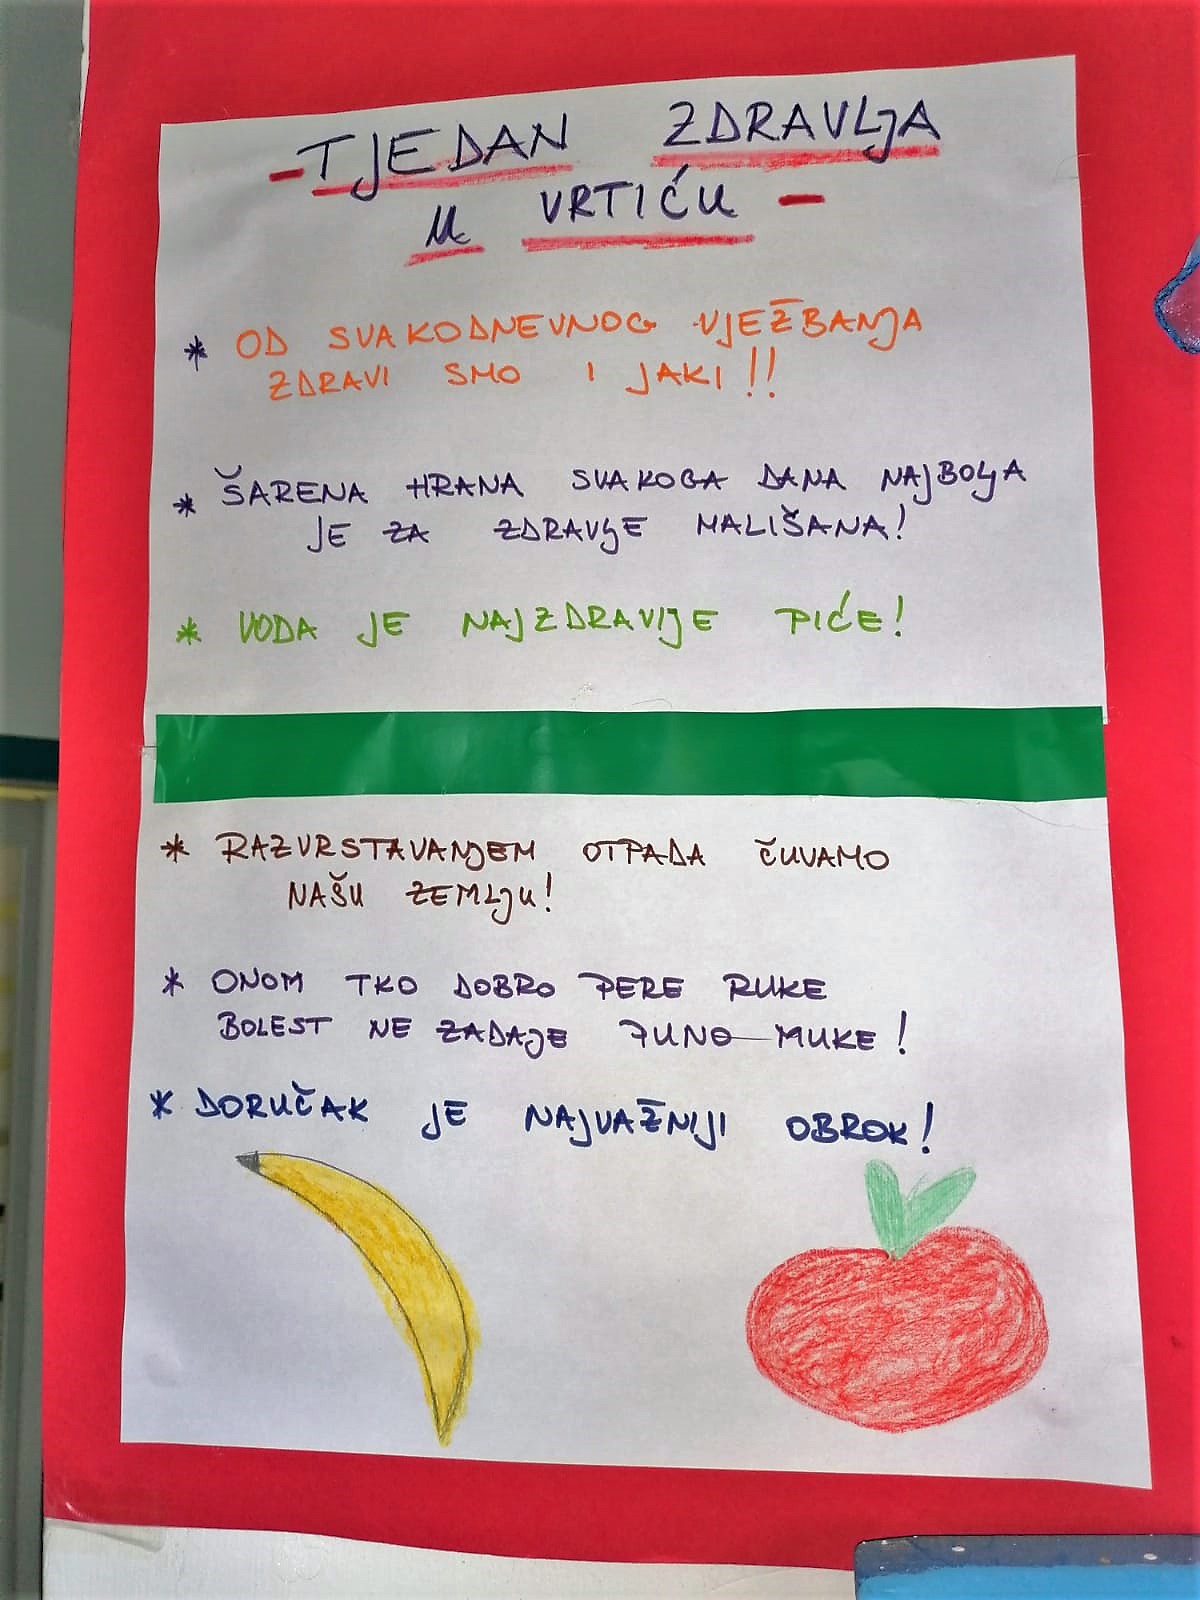 - TJEDAN ZDRAVLJA
U VRTIĆU -
* OD SVAKODNEVNOG VJEŽBANJA
ZDRAVI SMO I JAKI!!
* ŠARENA HRANA SVAKOGA DANA NAJBOLJA
JE ZA ZDRAVLJE MALIŠANA!
* VODA JE NAJZDRAVIJE PIĆE!
* RAZVRSTAVANJEM OTPADA ČUVAMO
NAŠU ZEMLJU!
* ONOM TKO DOBRO PERE RUKE
BOLEST NE ZADAJE PUNO MUKE!
* DORUČAK JE NAJVAŽNIJI OBROK!